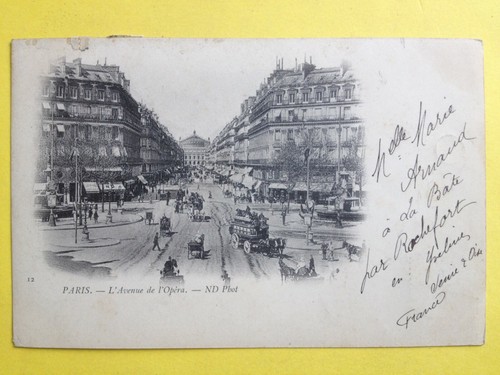 Mlle Marie
Arnaud
à La Bâte
par Rochefort
en Yveline
Seine & Oise
France
12
PARIS. — L'Avenue de l'Opéra. — ND Phot